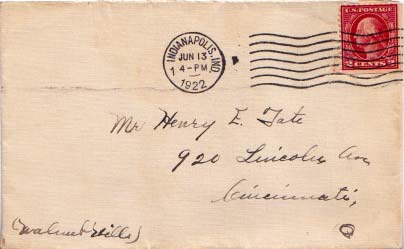 INDIANAPOLIS, IND.
JUN 13
4-PM
1
1922
U.S. POSTAGE
2 CENTS 2
Mr Henry E. Tate
920 Lincoln Ave
Cincinnati,
O
(Walnut Hills)